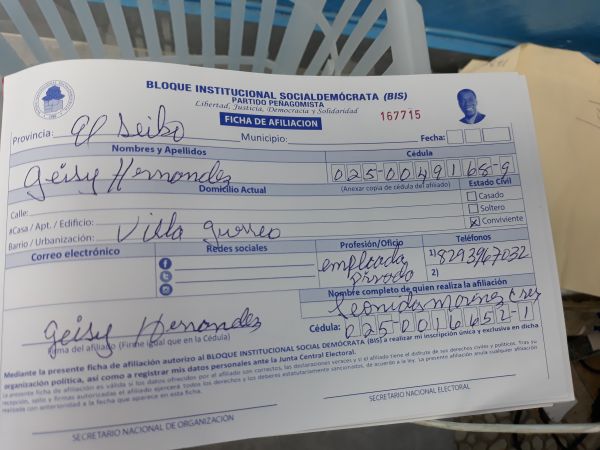 BLOQUE INSTITUCIONAL SOCIALDEMÓCRATA (BIS)
PARTIDO PEÑAGOMISTA
Libertad, Justicia, Democracia y Solidaridad
FICHA DE AFILIACION 167715
Provincia: El Seibo Municipio: Fecha:
Nombres y Apellidos Cédula
Geisy Hernandez 025-0049168-9
Domicilio Actual (Anexar copia de cédula del afiliado) Estado Civil
Calle: Casado
#Casa / Apt. / Edificio: Soltero
Barrio / Urbanización: Villa Conviviente
Correo electrónico Redes sociales Profesión/Oficio Teléfonos
empleada 1) 8293967032
Privada 2)
Nombre completo de quien realiza la afiliación
Geisy Hernandez
Firma del afiliado (Firme igual que en la Cédula) Cédula: 025-0016652-1
Mediante la presente ficha de afiliación autorizo al BLOQUE INSTITUCIONAL SOCIAL DEMÓCRATA (BIS) a realizar mi inscripción única y exclusiva en dicha
organización política, así como a registrar mis datos personales ante la Junta Central Electoral.
SECRETARIO NACIONAL DE ORGANIZACIÓN SECRETARIO NACIONAL ELECTORAL